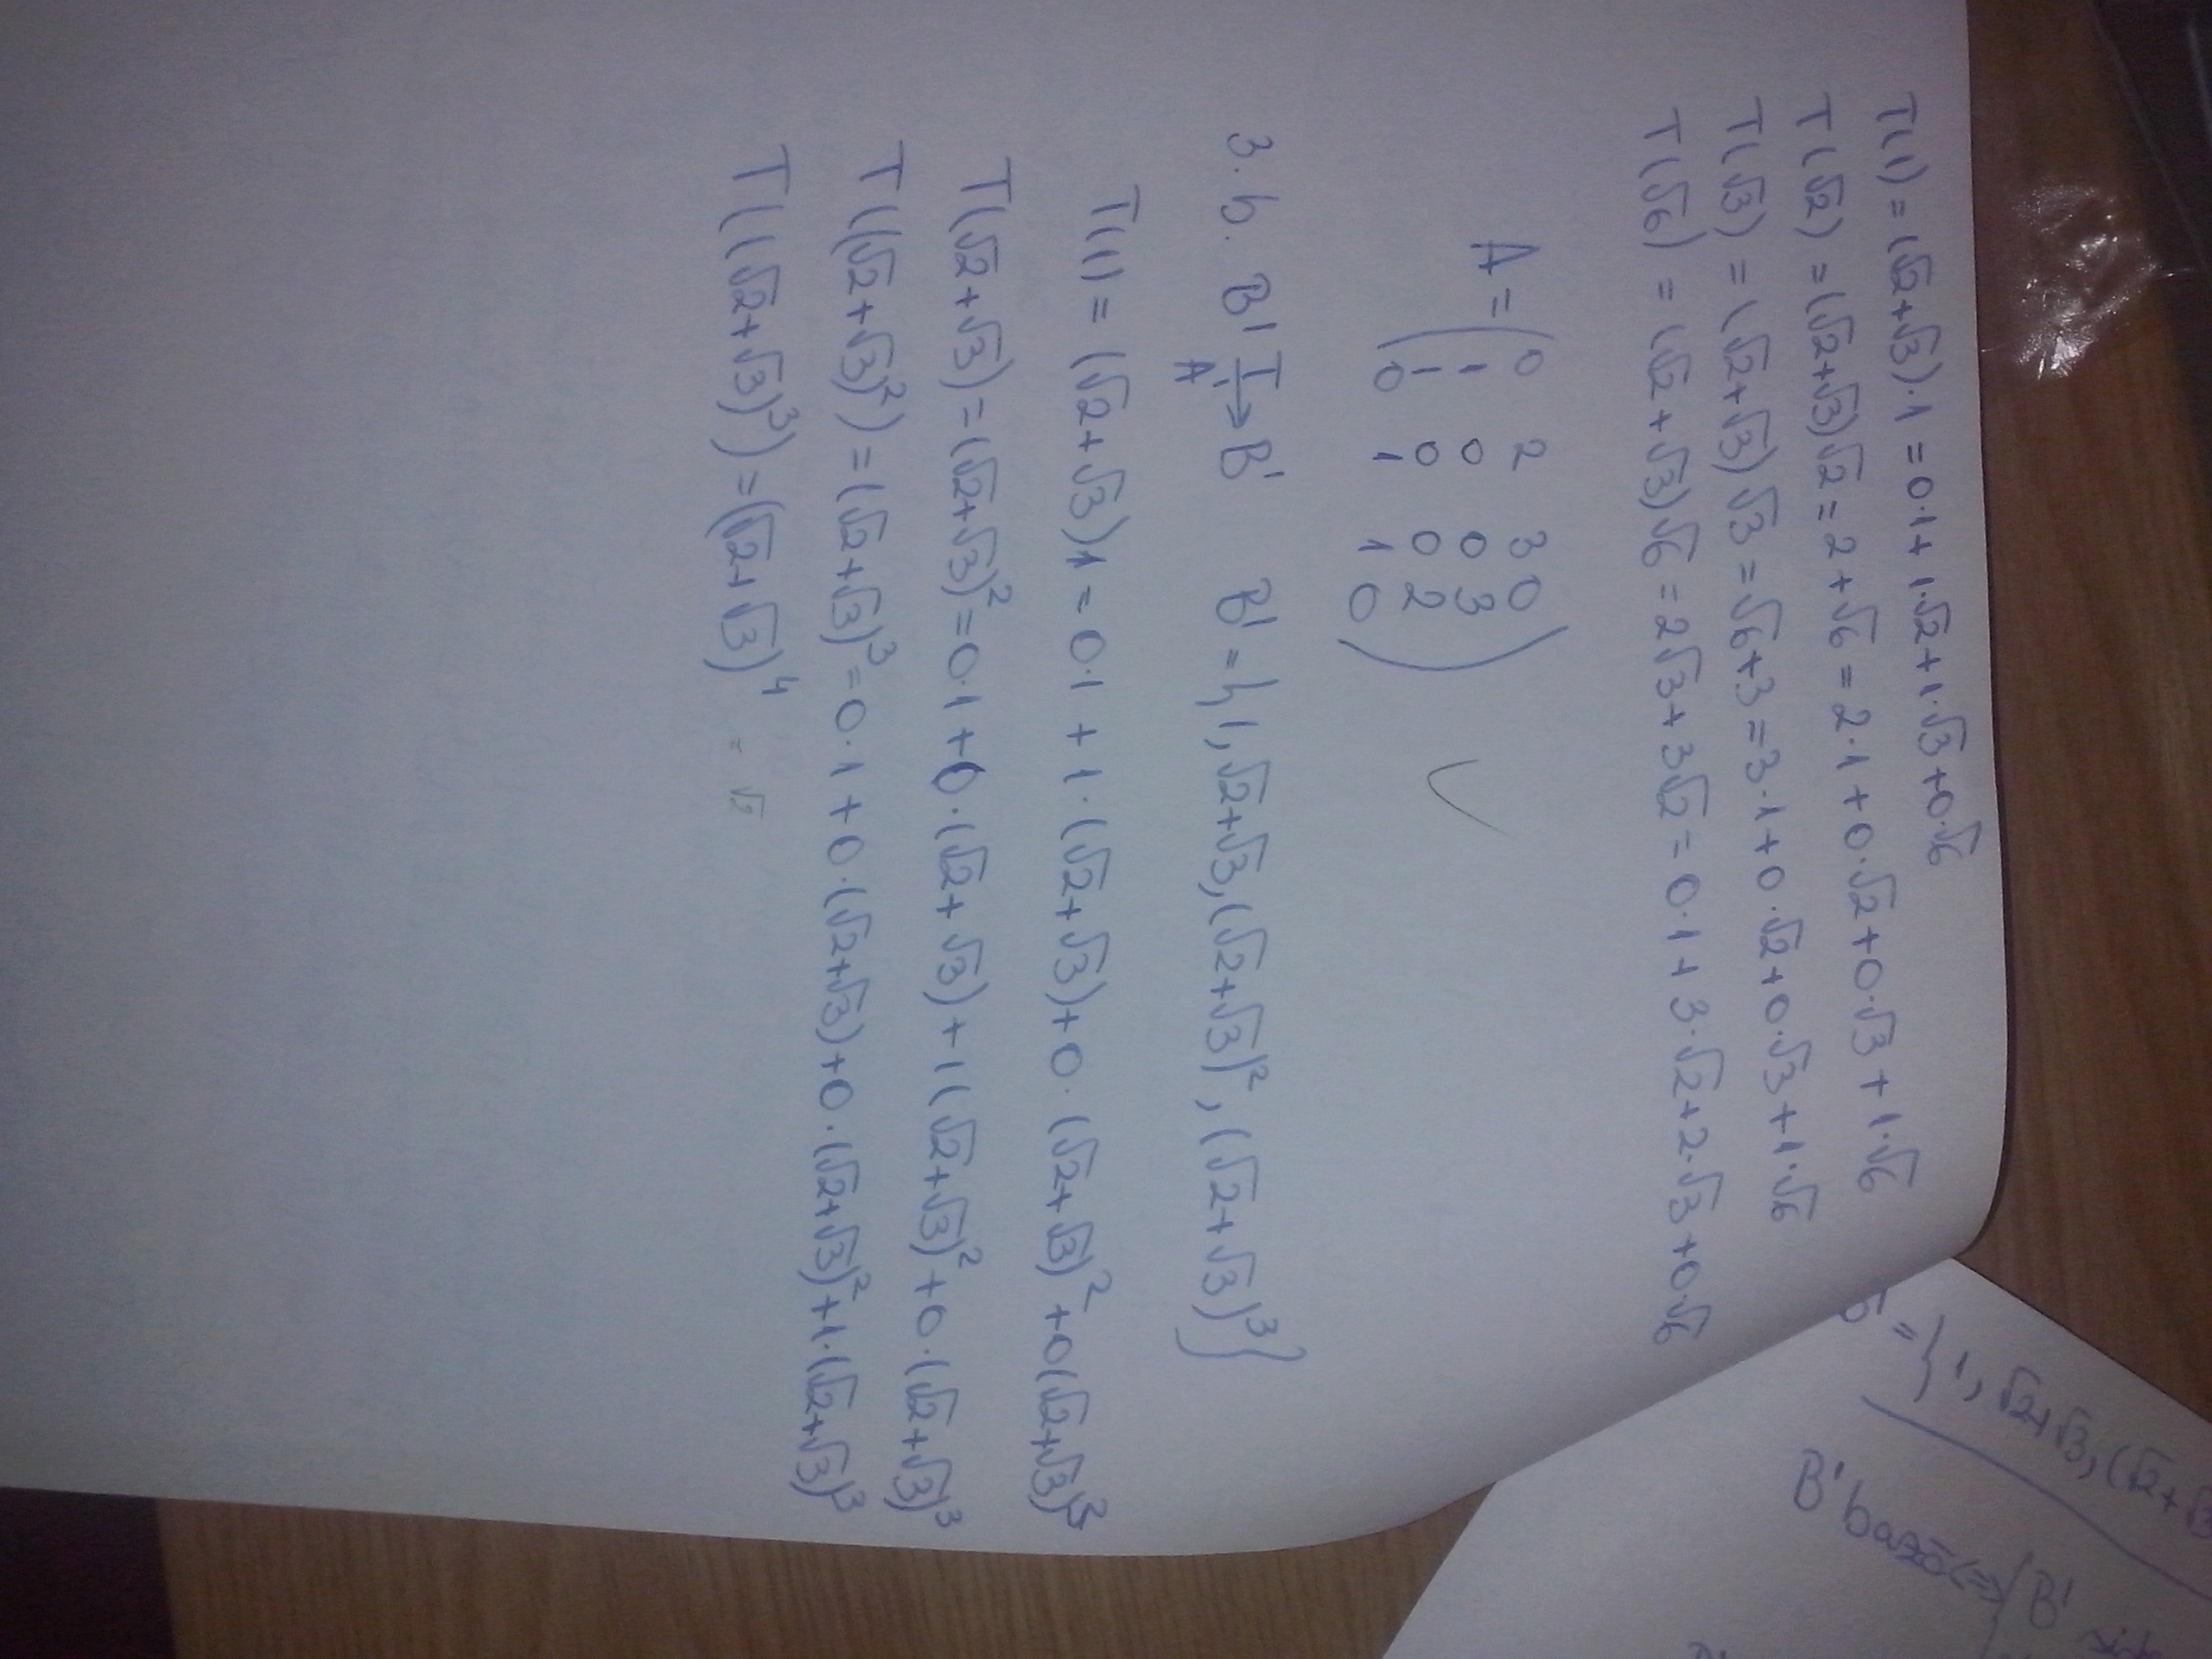 T(1) = (√2+√3)·1 = 0·1+1·√2+1·√3+0·√6
T(√2) = (√2+√3)√2 = 2+√6 = 2·1+0·√2+0·√3+1·√6
T(√3) = (√2+√3)√3 = √6+3 = 3·1+0·√2+0·√3+1·√6
T(√6) = (√2+√3)√6 = 2√3+3√2 = 0·1+3·√2+2·√3+0·√6
A = (0 2 3 0
1 0 0 3
1 0 0 2
0 1 1 0) ✓
3. b. B' T→ B' B' = {1, √2+√3, (√2+√3)², (√2+√3)³}
A
T(1) = (√2+√3)1 = 0·1 + 1·(√2+√3)+0·(√2+√3)²+0(√2+√3)³
T(√2+√3) = (√2+√3)² = 0·1+0·(√2+√3)+1(√2+√3)²+0·(√2+√3)³
T((√2+√3)²) = (√2+√3)³ = 0·1+0·(√2+√3)+0·(√2+√3)²+1·(√2+√3)³
T((√2+√3)³) = (√2+√3)⁴ =
= {1, √2+√3, (√2+√3
B' bază (=> B'